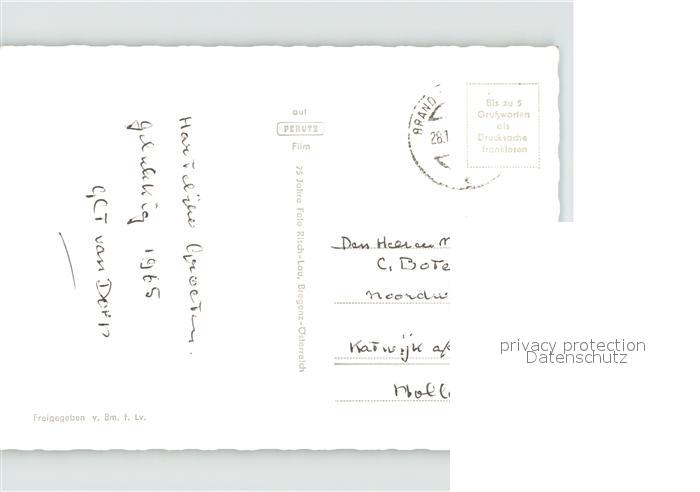 Hartelijke Groeten.
gelukkig 1965
GCT van Dorp
auf
PERUTZ
Film
75 Jahre Foto Risch-Lau, Bregenz-Österreich
BRAND
28.1
Bis zu 5
Grußworten
als
Drucksache
frankieren
Den Heer en M
C. Bote
Noordw
Katwijk a/
Holl
Freigegeben v. Bm. f. Lv.
privacy protection
Datenschutz